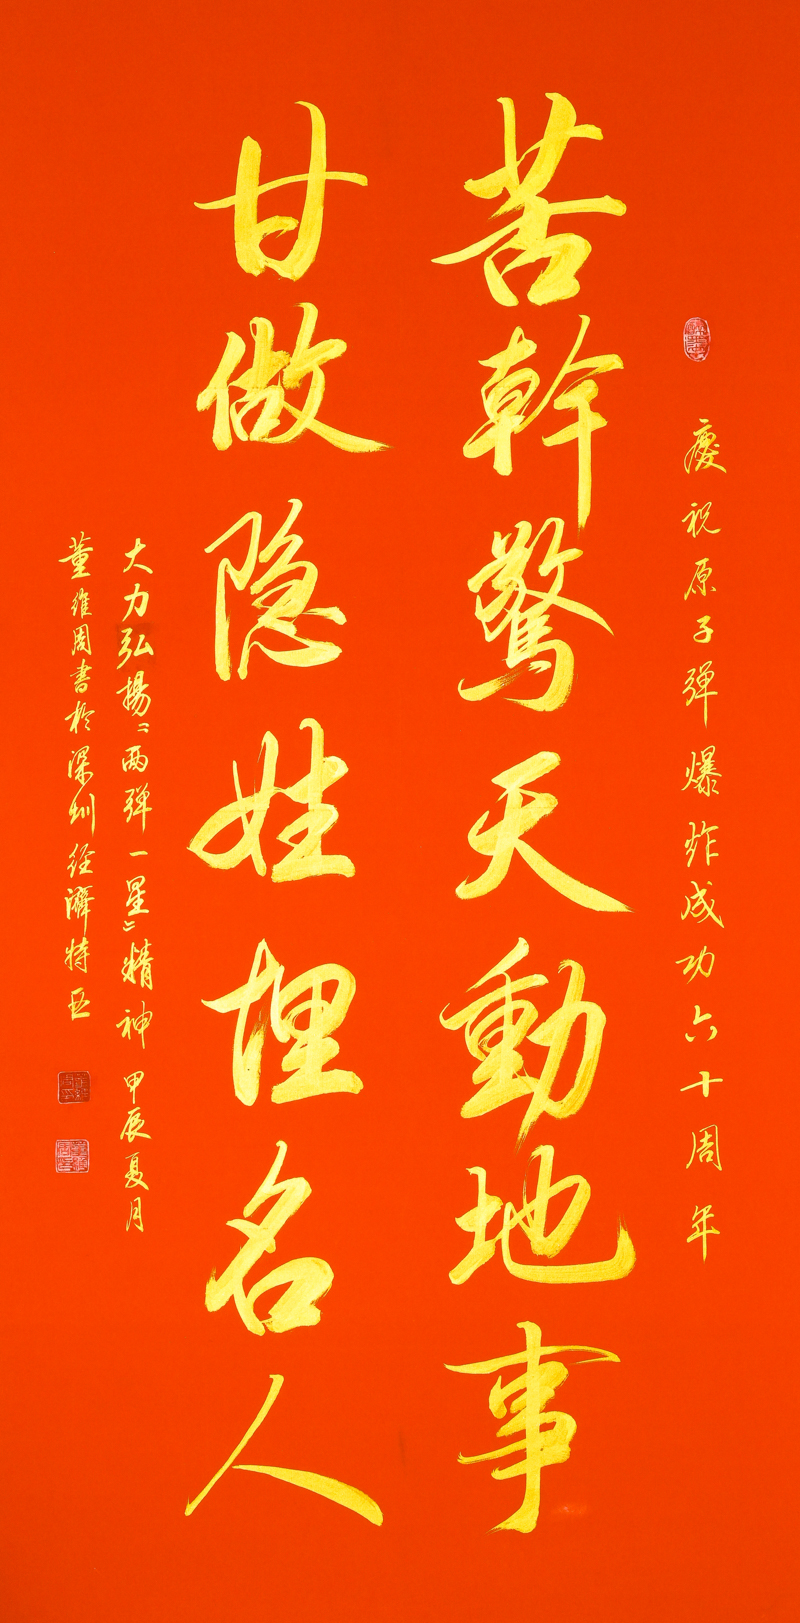 慶祝原子弹爆炸成功六十周年
苦幹驚天動地事
甘做隐姓埋名人
大力弘揚“两弹一星”精神 甲辰夏月
董維周書於深圳经濟特区